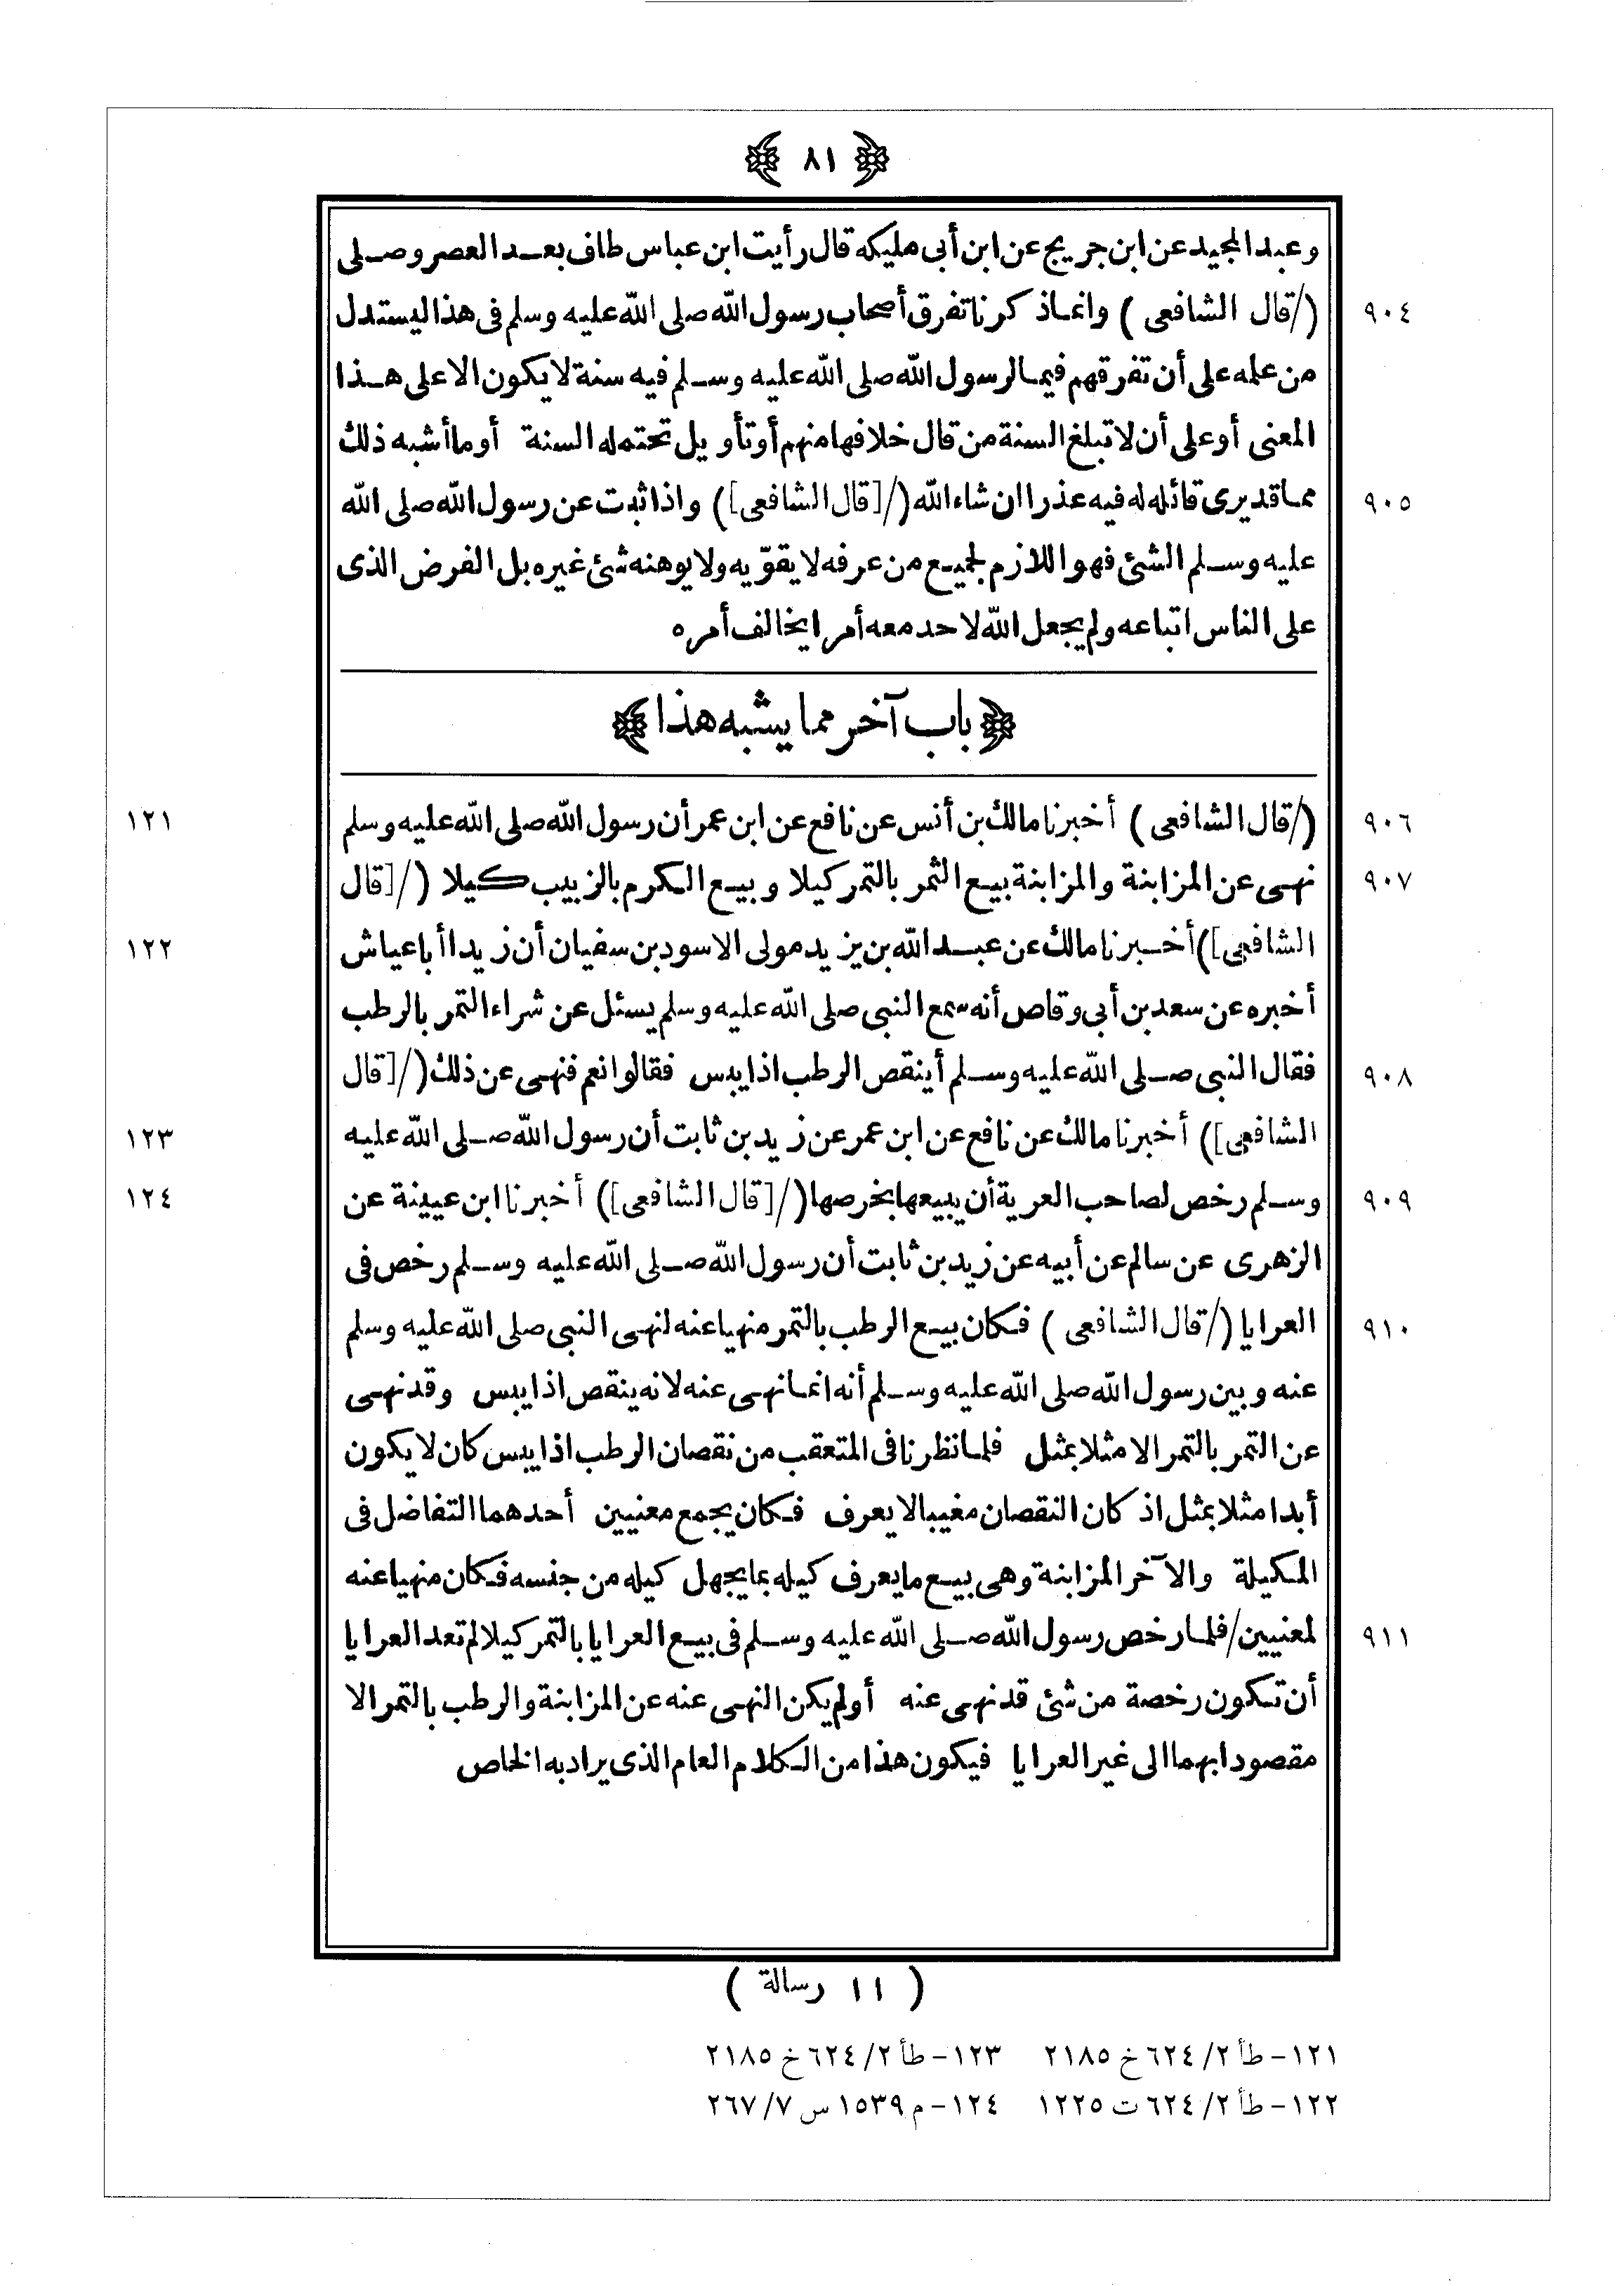 ﴿ ٨١ ﴾
وعبد المجيد عن ابن جريج عن ابن أبى مليكه قال رأيت ابن عباس طاف بعد العصر وصلى
٩٠٤ (/قال الشافعى) وانما ذكرنا تفرق أصحاب رسول الله صلى الله عليه وسلم فى هذا ليستدل
من علمه على أن تفرقهم فيما لرسول الله صلى الله عليه وسلم فيه سنة لا يكون الا على هذا
المعنى أو على أن لا تبلغ السنة من قال خلافها منهم أو تأويل تحتمله السنة أو ما أشبه ذلك
٩٠٥ مما قد يرى قائله له فيه عذرا ان شاء الله (/[قال الشافعى]) واذا ثبت عن رسول الله صلى الله
عليه وسلم الشئ فهو اللازم لجميع من عرفه لا يقوّيه ولا يوهنه شئ غيره بل الفرض الذى
على الناس اتباعه ولم يجعل الله لاحد معه أمرا يخالف أمره
﴿باب آخر مما يشبه هذا﴾
٩٠٦ (/قال الشافعى) أخبرنا مالك بن أنس عن نافع عن ابن عمر أن رسول الله صلى الله عليه وسلم ١٢١
٩٠٧ نهى عن المزابنة والمزابنة بيع الثمر بالتمر كيلا وبيع الكرم بالزبيب كيلا (/[قال
الشافعى]) أخبرنا مالك عن عبد الله بن يزيد مولى الاسود بن سفيان أن زيدا أبا عياش ١٢٢
أخبره عن سعد بن أبى وقاص أنه سمع النبى صلى الله عليه وسلم يسئل عن شراء التمر بالرطب
٩٠٨ فقال النبى صلى الله عليه وسلم أينقص الرطب اذا يبس فقالوا نعم فنهى عن ذلك (/[قال
الشافعى]) أخبرنا مالك عن نافع عن ابن عمر عن زيد بن ثابت أن رسول الله صلى الله عليه ١٢٣
٩٠٩ وسلم رخص لصاحب العرية أن يبيعها بخرصها (/[قال الشافعى]) أخبرنا ابن عيينة عن ١٢٤
الزهرى عن سالم عن أبيه عن زيد بن ثابت أن رسول الله صلى الله عليه وسلم رخص فى
٩١٠ العرايا (/قال الشافعى) فكان بيع الرطب بالتمر منهيا عنه لنهى النبى صلى الله عليه وسلم
عنه وبين رسول الله صلى الله عليه وسلم أنه انما نهى عنه لانه ينقص اذا يبس وقد نهى
عن التمر بالتمر الا مثلا بمثل فلما نظرنا فى المتعقب من نقصان الرطب اذا يبس كان لا يكون
أبدا مثلا بمثل اذ كان النقصان مغيبا لا يعرف فكان يجمع معنيين أحدهما التفاضل فى
المكيلة والآخر المزابنة وهى بيع ما يعرف كيله بما يجهل كيله من جنسه فكان منهيا عنه
٩١١ لمعنيين/فلما رخص رسول الله صلى الله عليه وسلم فى بيع العرايا بالتمر كيلا لم تعد العرايا
أن تكون رخصة من شئ قد نهى عنه أو لم يكن النهى عنه عن المزابنة والرطب بالتمر الا
مقصودا بهما الى غير العرايا فيكون هذا من الكلام العام الذى يراد به الخاص
( ١١ رسالة )
١٢١- طأ ٦٢٤/٢ خ ٢١٨٥ ١٢٣- طأ ٦٢٤/٢ خ ٢١٨٥
١٢٢- طأ ٦٢٤/٢ ت ١٢٢٥ ١٢٤- م ١٥٣٩ س ٢٦٧/٧